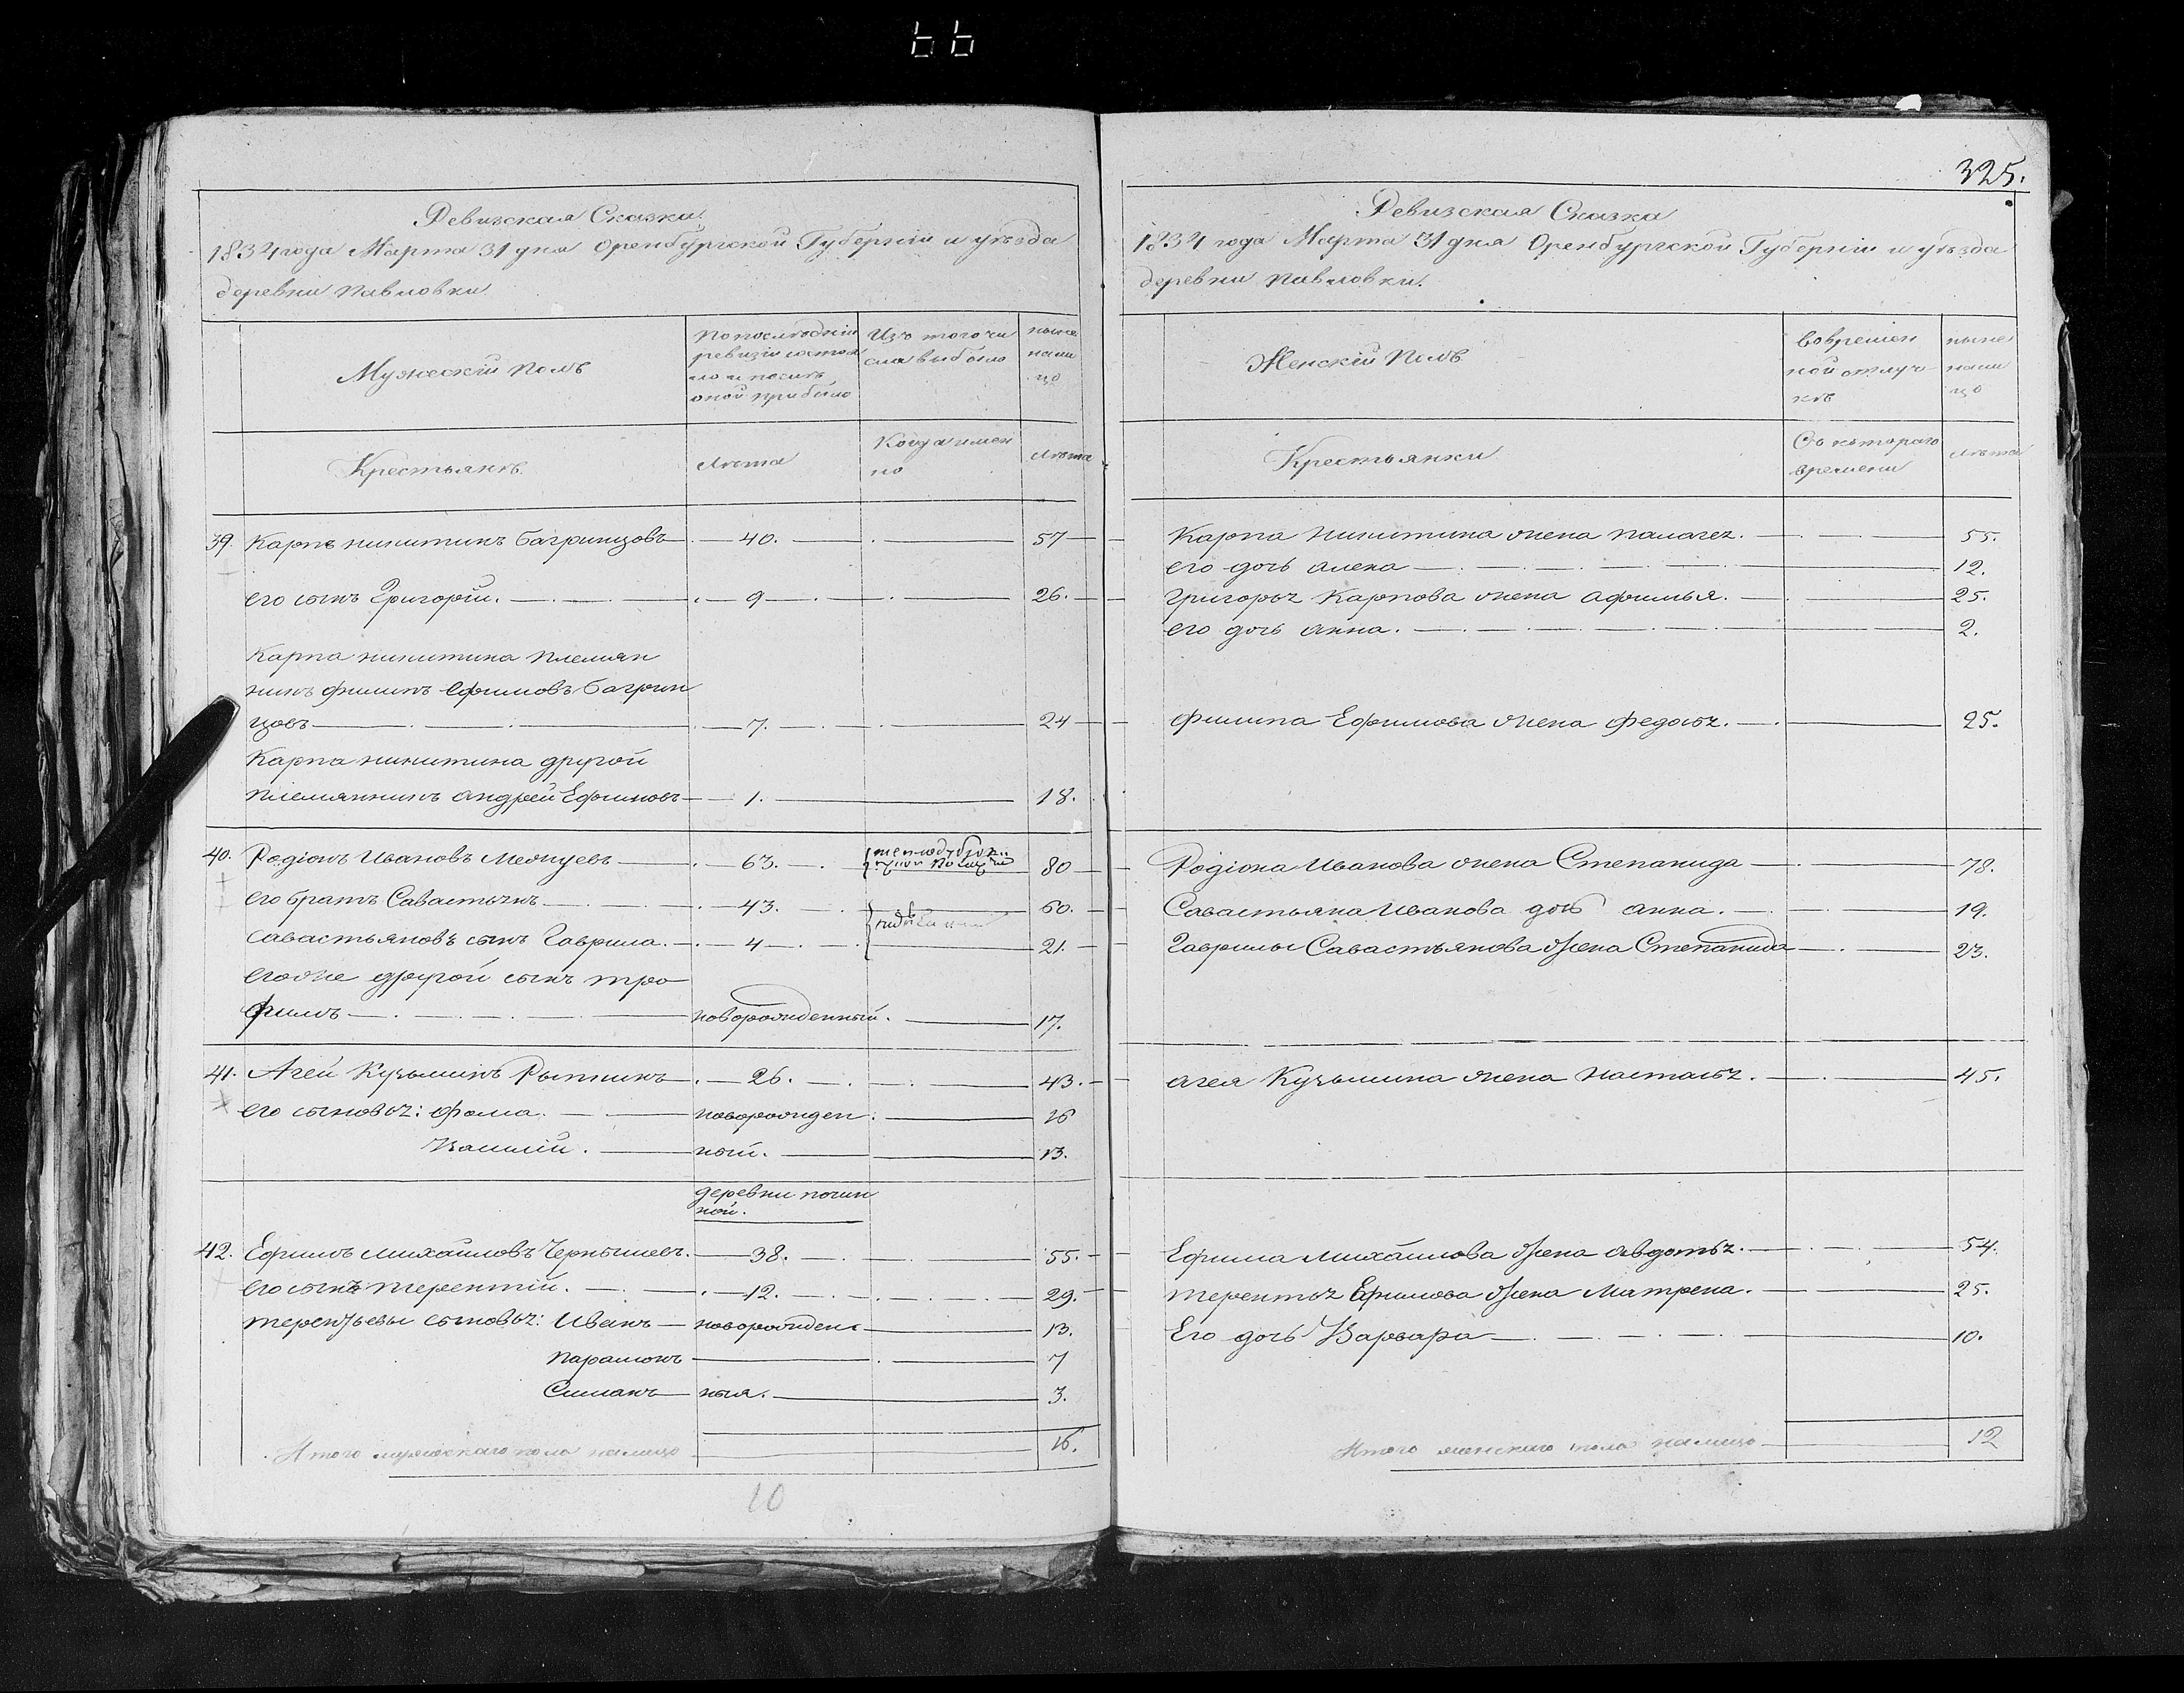 325.
Ревизская Сказка
1834 года Марта 31 дня Оренбургской Губерніи и уѣзда
деревни Павловки
Мужескій Полъ
По последніи
ревизіи состоя
ло и послѣ
оной прибыло
Изъ того чи
сла выбыло
ныне
нали
цо
Крестьянъ.
Лѣта
Когда имен
но
Лѣта
39. Карпъ Никитинъ Багринцовъ 40. 57
его сынъ Григорій. 9 26.
Карпа Никитина племян
никъ Филипъ Ефимовъ Багрин
цовъ 7. 24
Карпа Никитина другой
племянникъ Андрей Ефимовъ 1. 18.
40. Родіонъ Ивановъ 63. 80
его братъ Савастьянъ 43. 60.
Савастьяновъ сынъ Гаврила. 4 21.
Его же другой сынъ Тро
фимъ новорожденный. 17.
41. Агей Кузьминъ 26. 43.
его сыновья: Фома. новорожден 16
Василій. ной. 13.
деревни почин
ной.
42. Ефимъ Михайловъ Чернышевъ. 38. 55.
его сынъ Терентій. 12. 29.
Терентьевы сыновья: Иванъ новорожден 13.
Парамонъ 7
Симанъ ныя. 3.
Итого мужескаго пола налицо 16.
10
Ревизская Сказка
1834 года Марта 31 дня Оренбургской Губерніи и уѣзда
деревни Павловки.
Женскій Полъ
Во времян
ной отлуч
кѣ
ныне
нали
цо
Крестьянки
Съ котораго
времени
Лѣта
Карпа Никитина жена Палагея. 55.
его дочь Алена 12.
Григорья Карпова жена Афимья. 25.
его дочь Анна. 2.
Филипа Ефимова жена Федосья. 25.
Родіона Иванова жена Степанида 78.
Савастьяна Иванова дочь Анна. 19.
Гаврилы Савастьянова жена Степанида 23.
Агея Кузьмина жена Настасья. 45.
Ефима Михайлова жена Авдотья. 54.
Терентья Ефимова жена Матрена. 25.
Его дочь Варвара 10.
Итого женскаго пола налицо 12